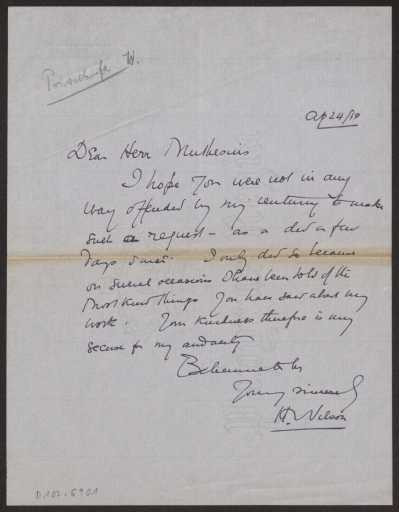 W.
Ap 24/10
Dear Herr Muthesius
I hope you were not in any
way offended by my venturing to make
such a request – as I did a few
days since. I only did so because
on several occasions I have been told of the
most kind things you have said about my
work. Your kindness therefore is my
excuse for my audacity
Believe me to be
Yours sincerely
H. Wilson
D 102-6901